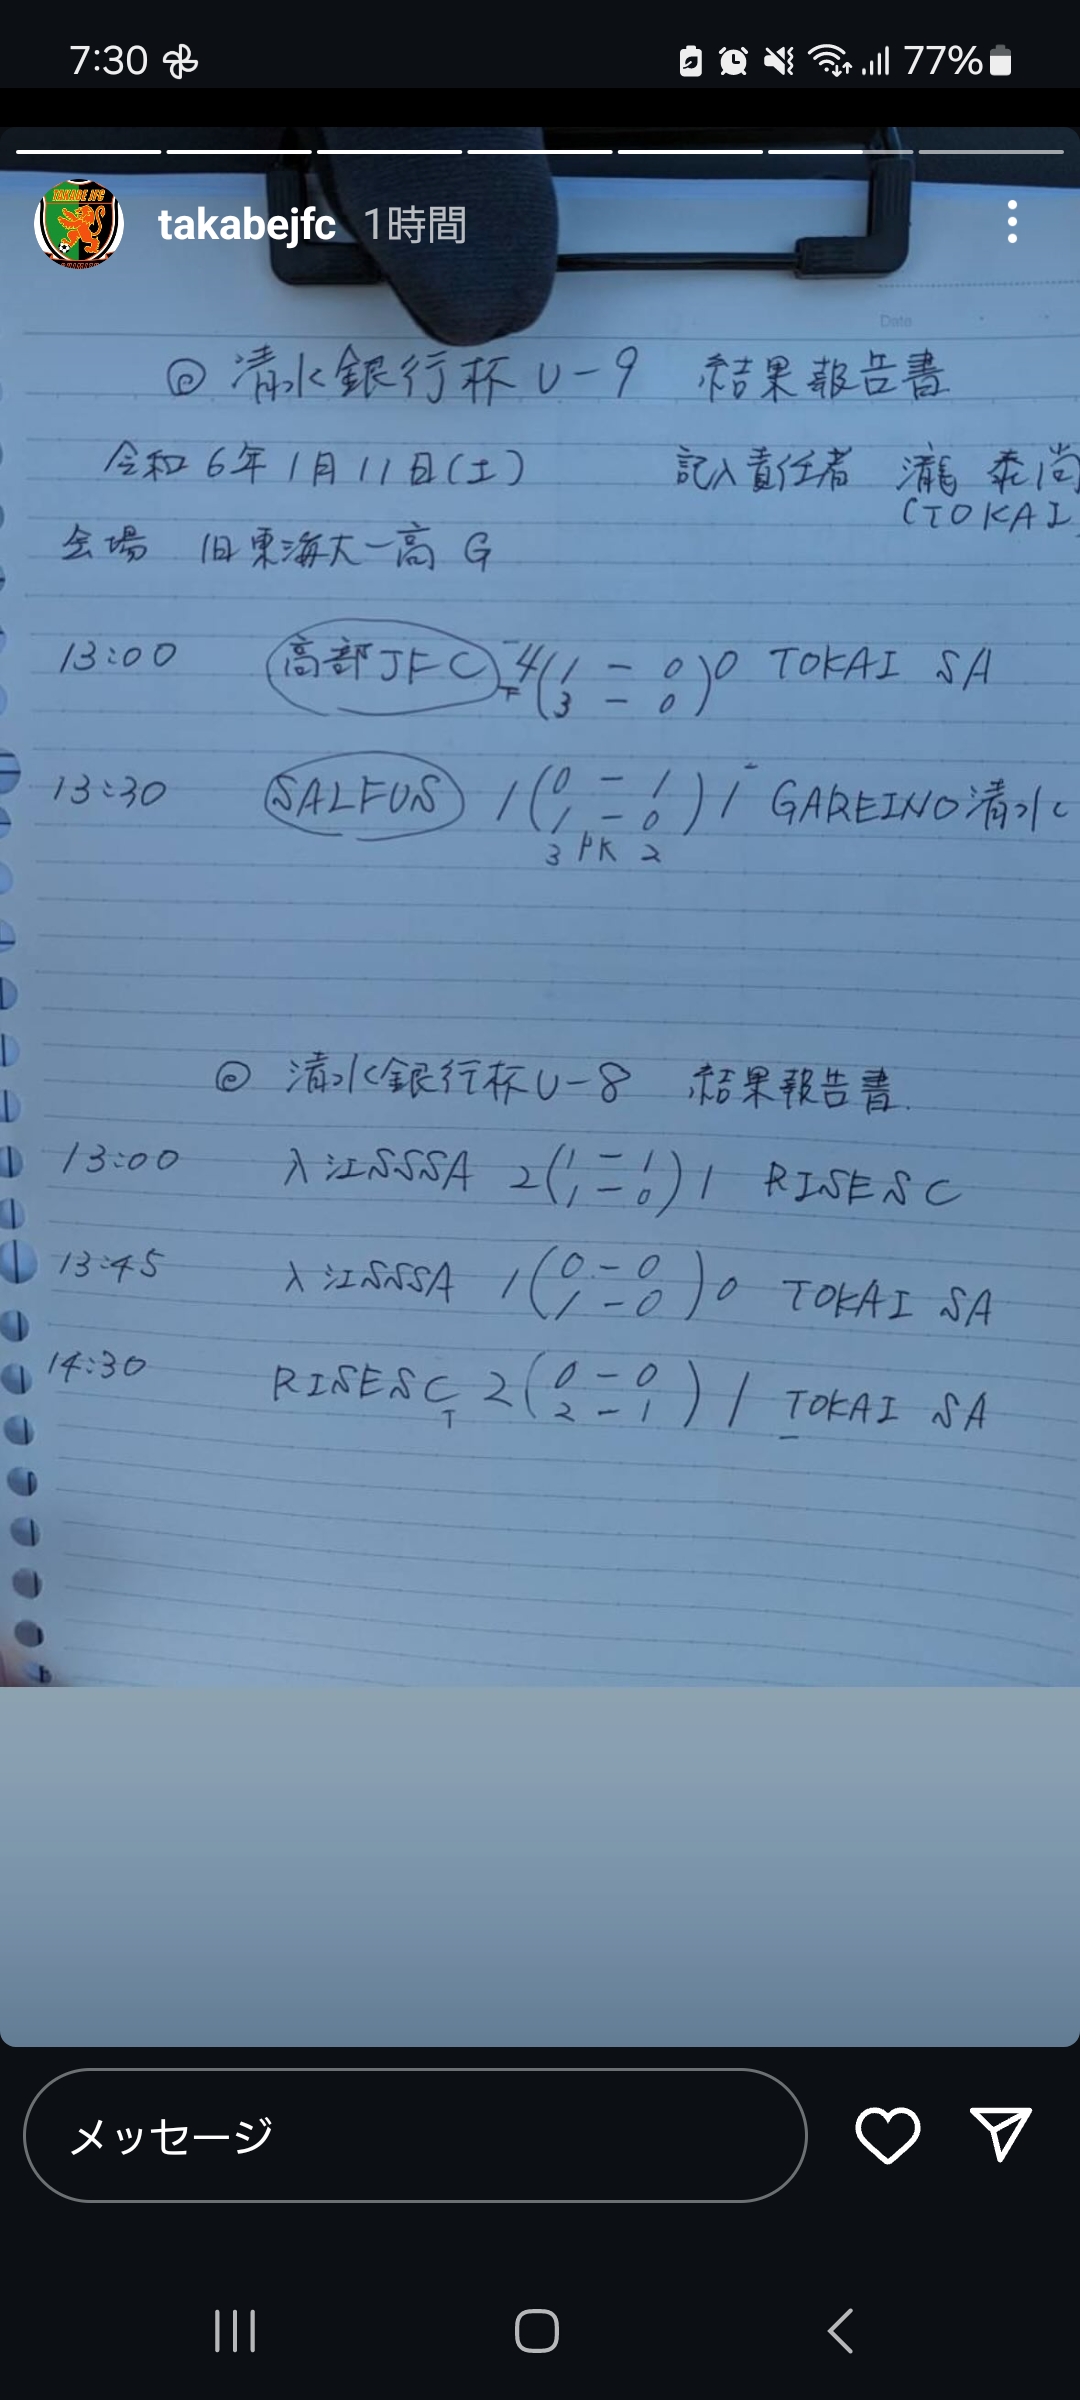 7:30
77%
takabejfc 1時間
Date
◎ 清水銀行杯 U-9 結果報告書
令和6年1月11日(土) 記入責任者 瀧 泰尚
(TOKAI
会場 旧東海大一高 G
13:00 高部JFC 4(1 - 0)0 TOKAI SA
3 - 0
13:30 SALFUS 1(0 - 1)1 GAREINO清水
1 - 0
3 PK 2
◎ 清水銀行杯U-8 結果報告書.
13:00 入江SSSA 2(1 - 1)1 RISESC
1 - 0
13:45 入江SSSA 1(0 - 0)0 TOKAI SA
1 - 0
14:30 RISESC 2(0 - 0)1 TOKAI SA
2 - 1
メッセージ